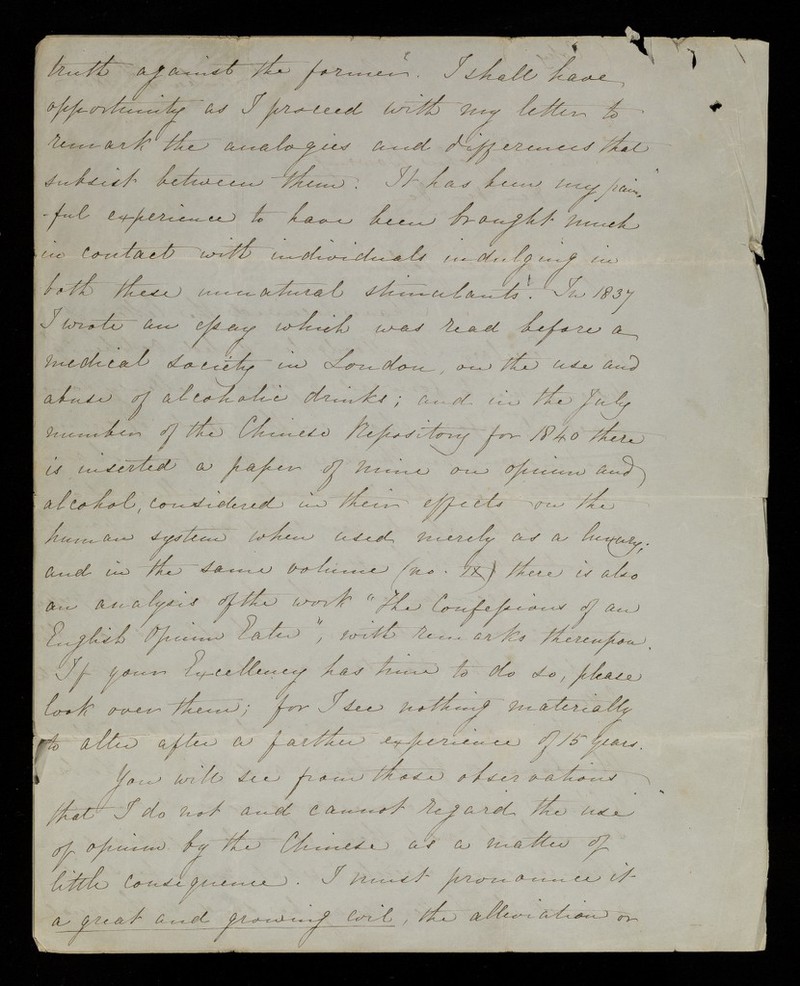 truth against the former". I shall have
opportunity as I proceed with my letter to
remark the analogies and differences that
subsist between them. It has been my pain-
-ful experience to have been brought much
in contact with individuals indulging in
both these unnatural stimulants. In 1837
I wrote an essay which was read before a
medical society in London, on the use and
abuse of alcoholic drinks; and in the July
number of the Chinese Repository for 1840 there
is inserted a paper of mine on opium and
alcohol, considered in their effects on the
human system when used merely as a luxury;
and in the same volume (no. IX) there is also
an analysis of the work "The Confessions of an
English Opium Eater", with remarks thereupon.
If your Excellency has time to do so, please
look over them; for I see nothing materially
to alter after a farther experience of 15 years.
You will see from those observations
that I do not and cannot regard the use
of opium by the Chinese as a matter of
little consequence. I must pronounce it
a great and growing evil, the alleviation or